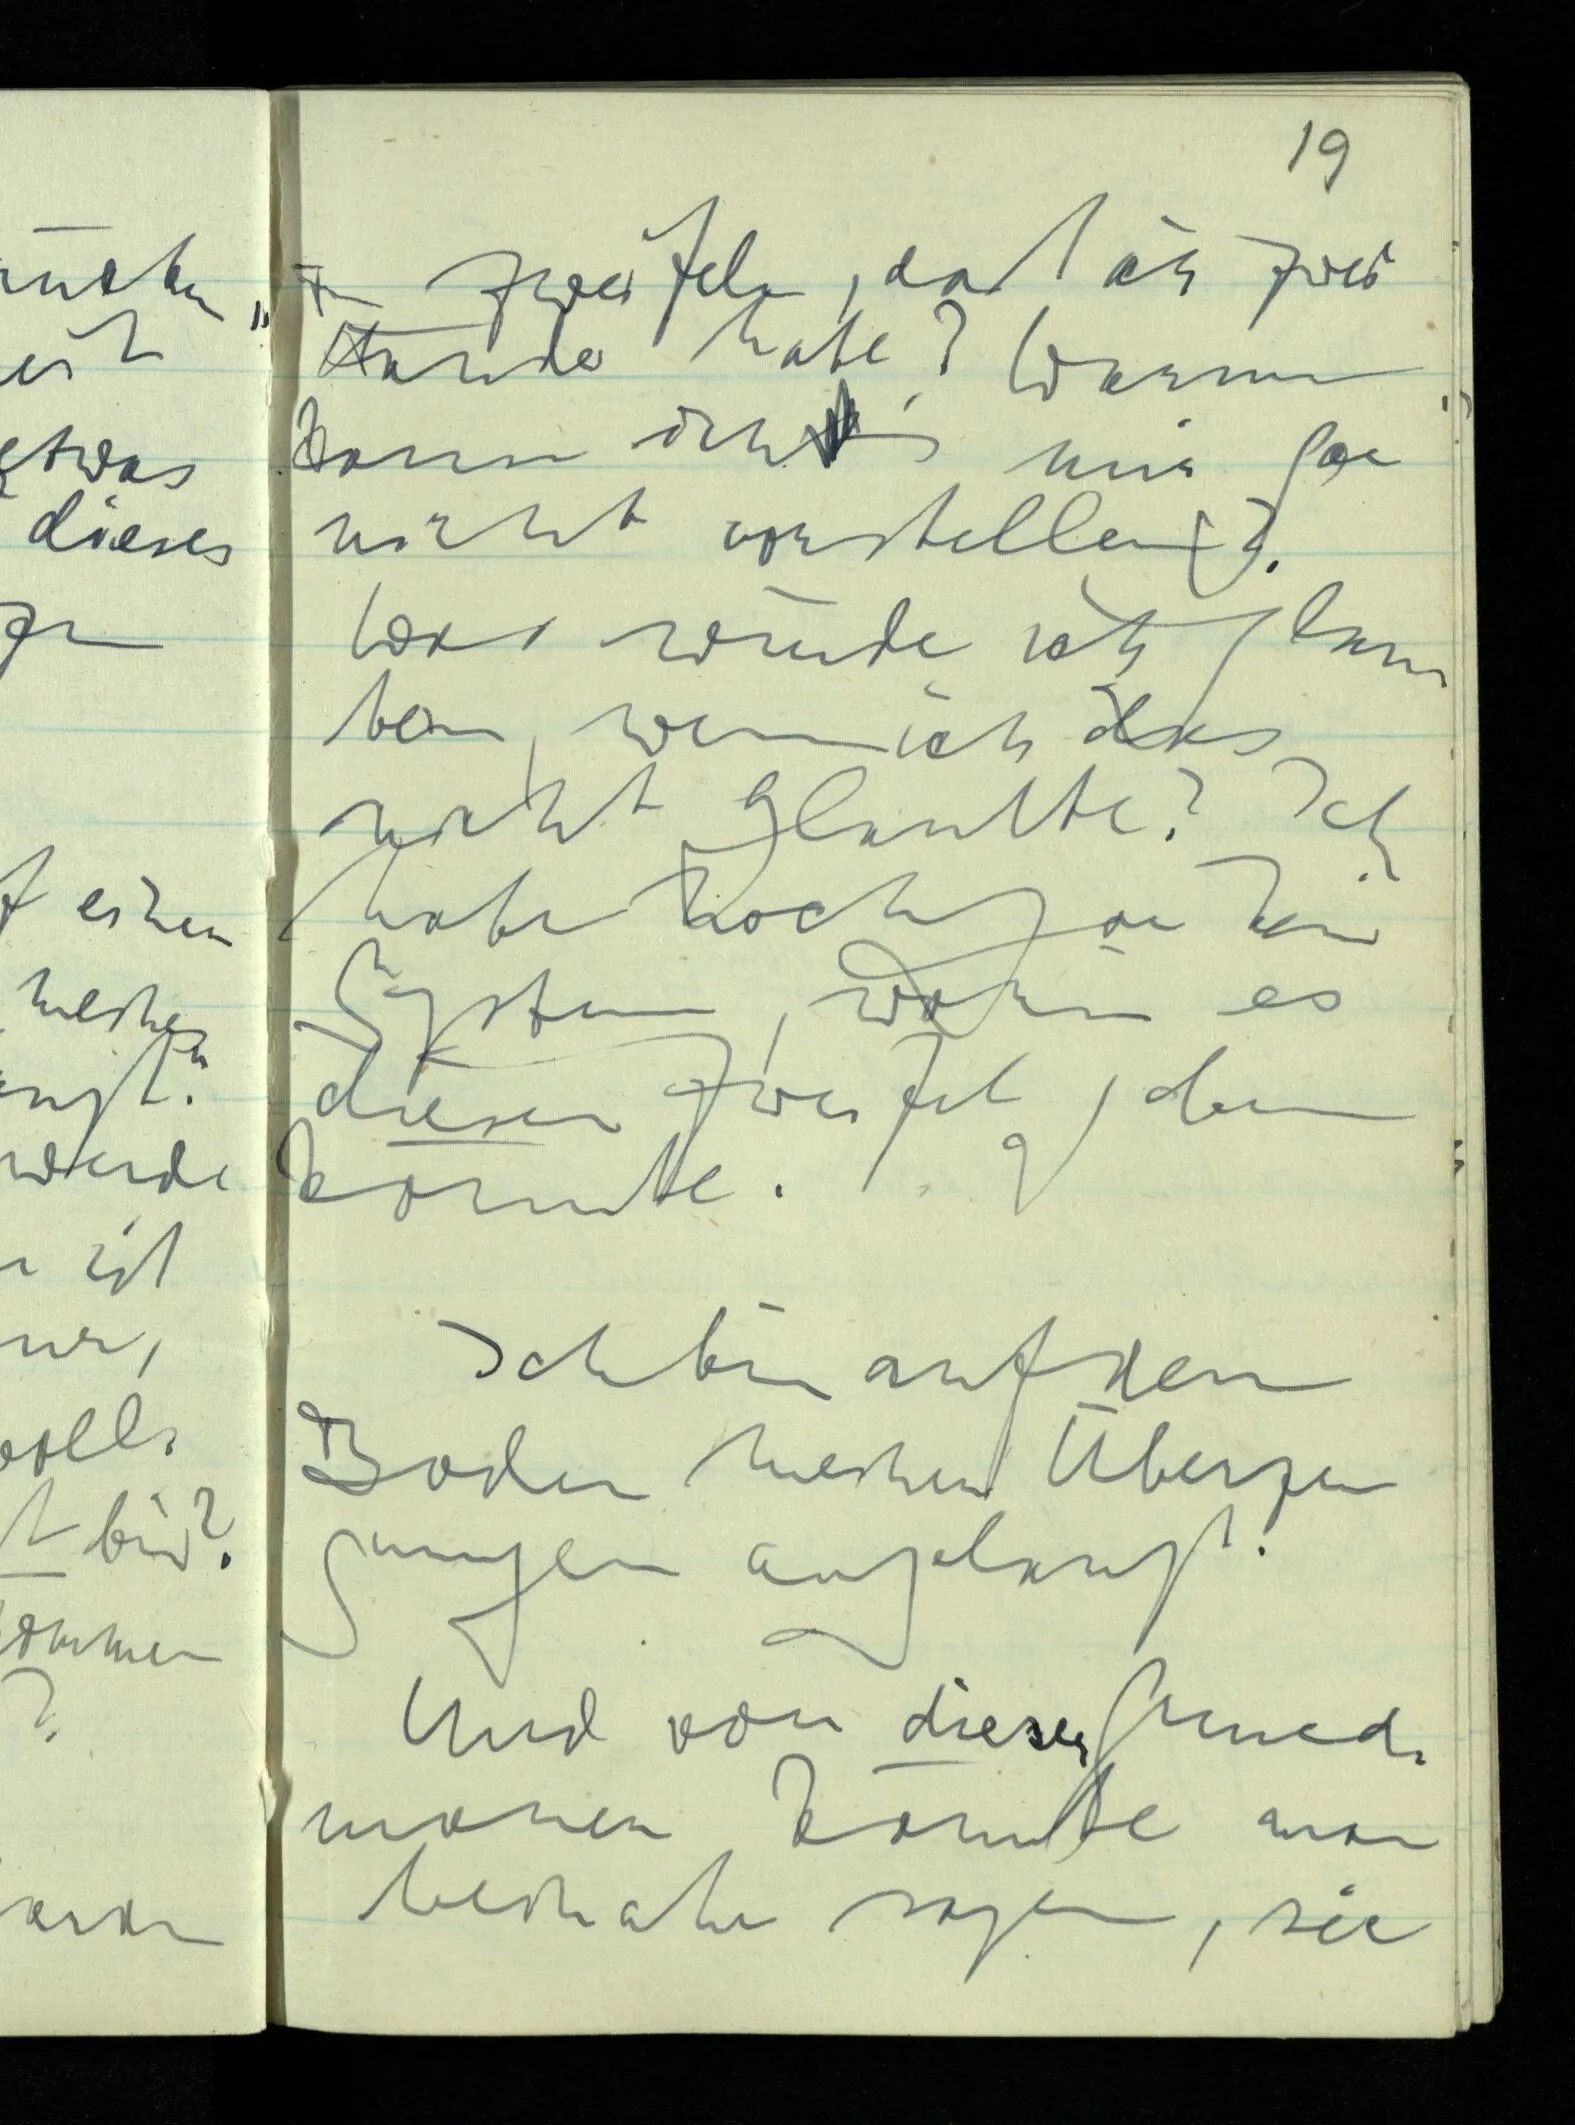 etwas
dieses
einen
werde
ist
bin?
19
zu zweifeln, daß ich zwei
Hände habe? Warum
kann ich's mir gar
nicht vorstellen?
Was würde ich glau
ben, wenn ich das
nicht glaubte? Ich
habe noch gar kein
System, worin es
diesen Zweifel geben
könnte.
Ich bin auf dem
Boden meiner Überzeu
gungen angelangt.
Und von dieser Grund
mauer könnte man
beinahe sagen, sie